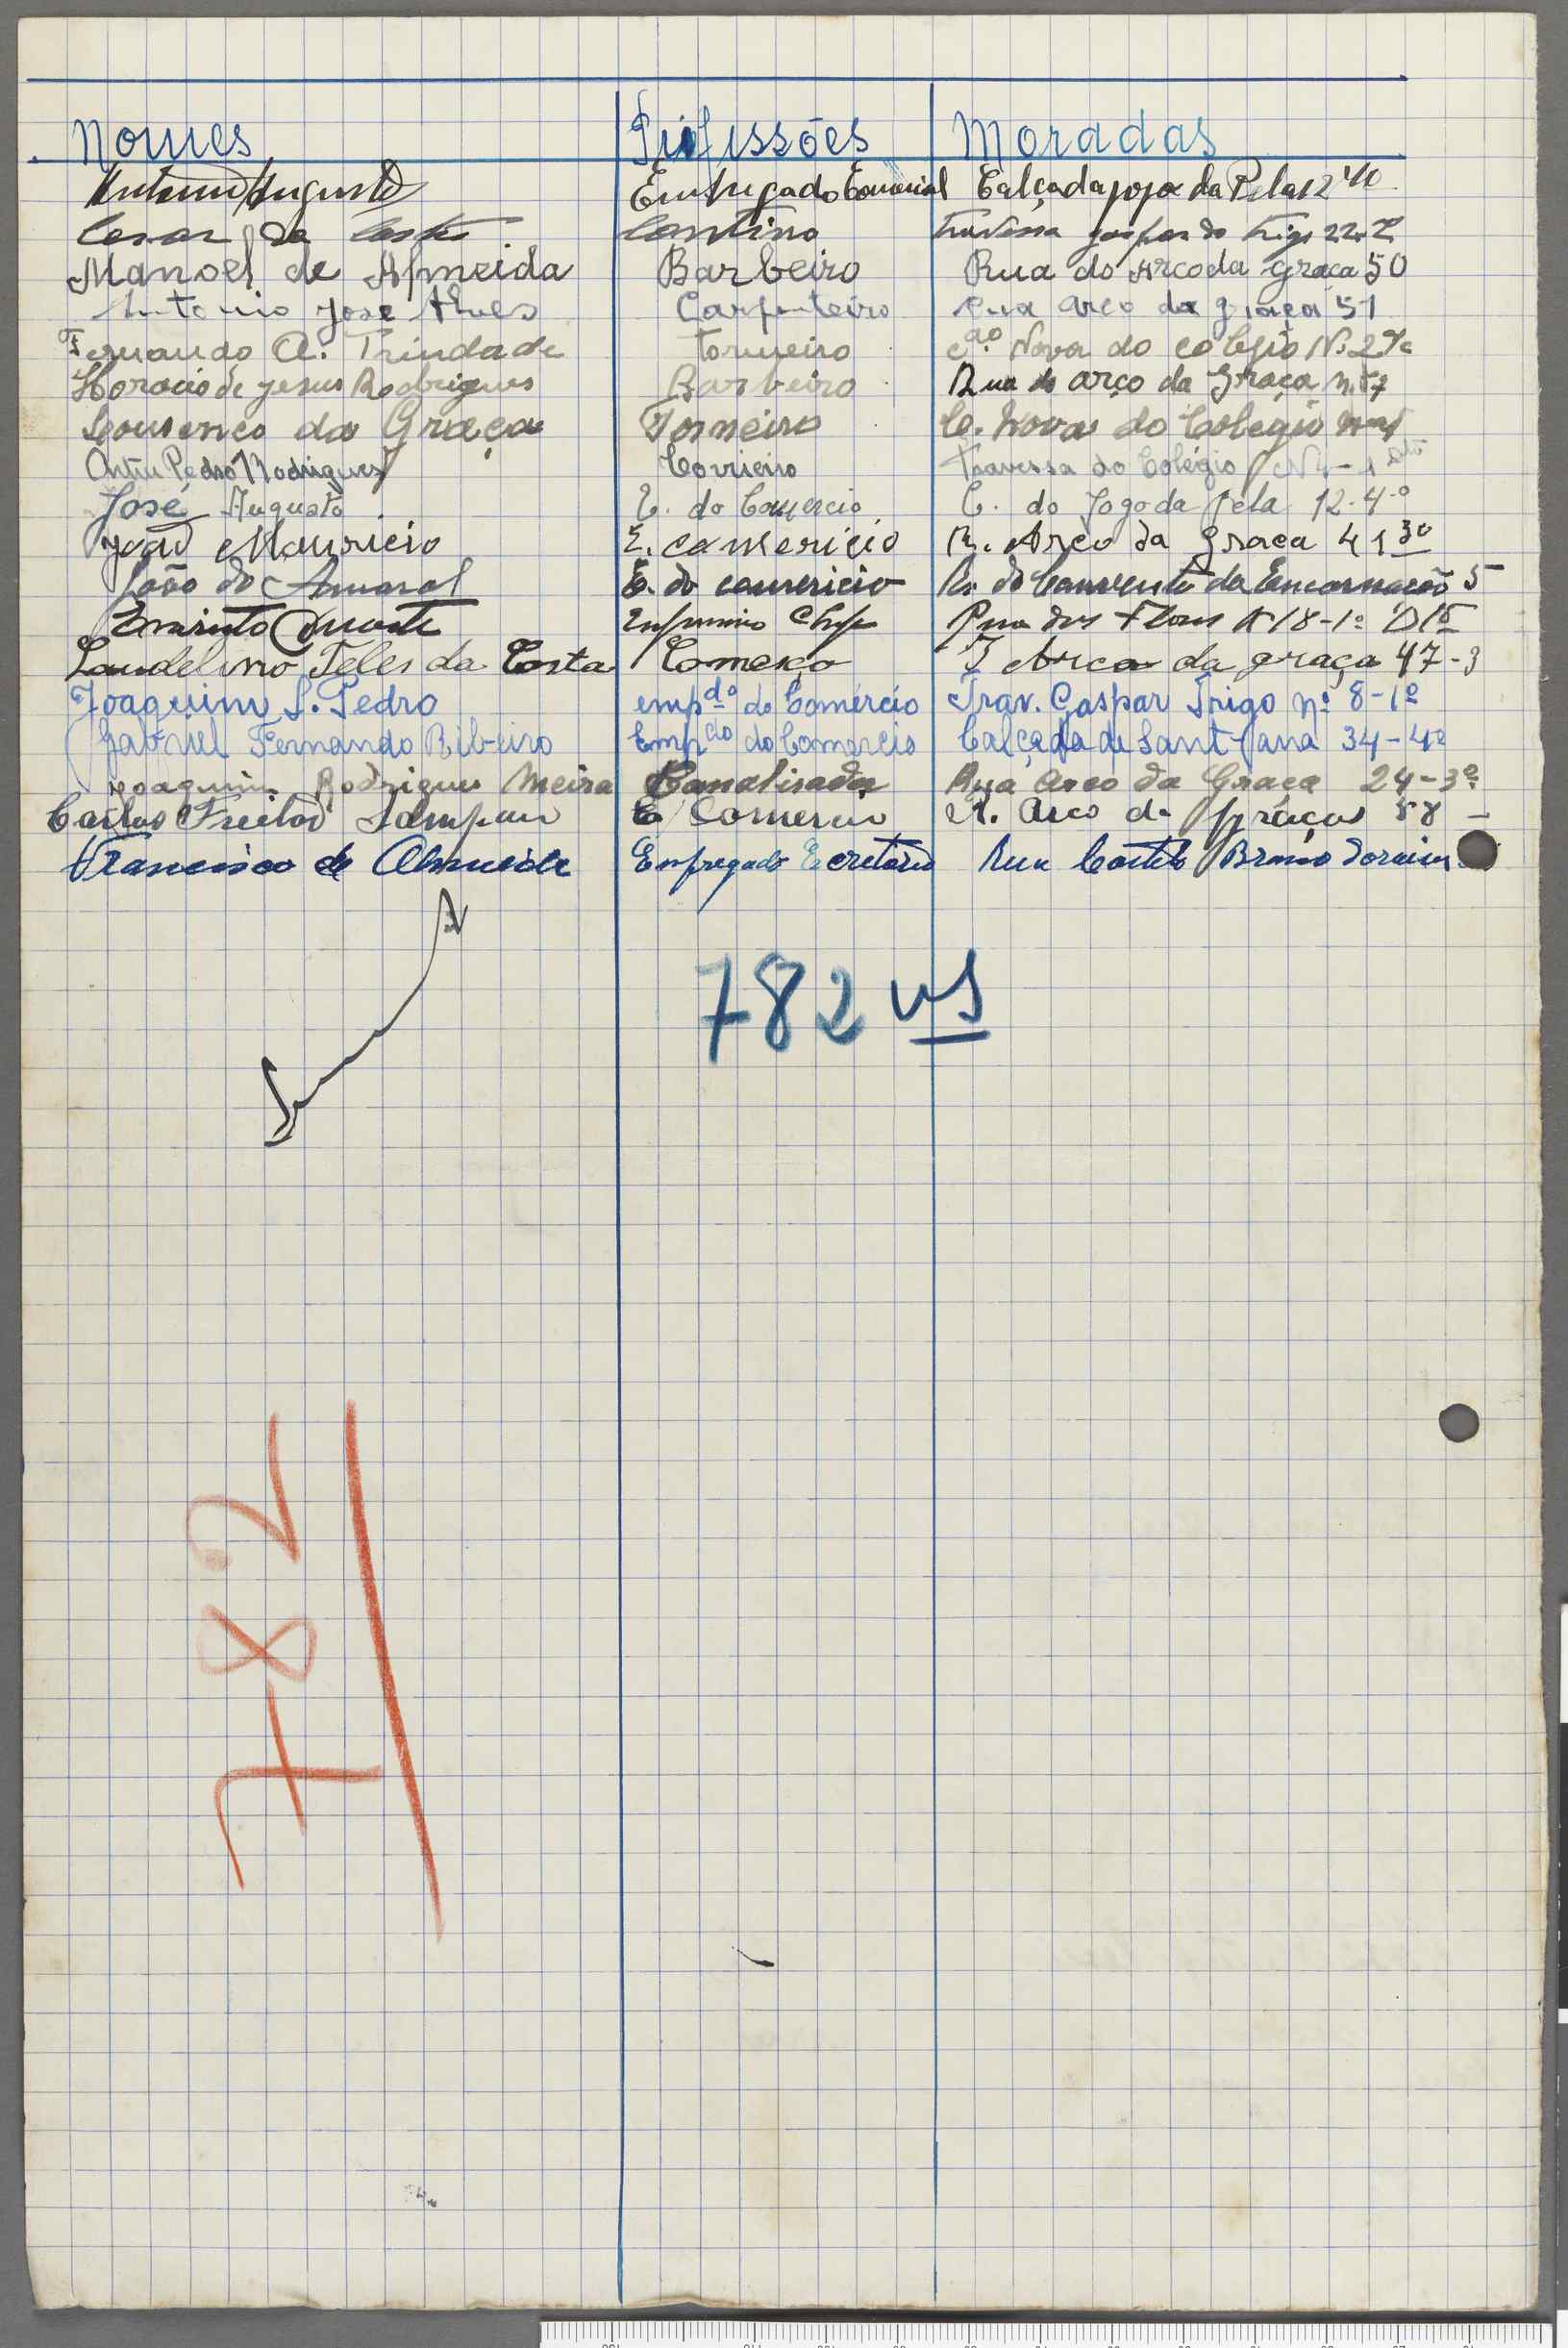 Nomes Profissões Moradas
Antonio Augusto Empregado Comercial Calçada jogo da Pela 12 4º
Cesar da Costa Contino Travessa gaspar do Trigo 22-2
Manoel de Almeida Barbeiro Rua do Arco da graça 50
Antonio José Alves Carpinteiro Rua arco da graça 51
Fernando A. Trindade Torneiro Nova do colegio Nº
Horacio de Jesus Rodrigues Barbeiro Rua do arco da Graça n. 57
Lourenço da Graça Torneiro C. Nova do Colegio
Pedro Rodrigues Corrieiro Travessa do Colégio Nº
José Augusto E. do Comercio C. do Jogo da Pela 12-4º
João Mauricio E. comericio R. Arco da graça 41 3º
João do Amaral E. do comericio R. do Convento da Encarnação 5
Duarte Rua das Flores Nº 18-1º Dtº
Laudelino Teles da Costa Comerço Arco da graça 47-3
Joaquim S. Pedro empdo do Comércio Trav. Gaspar Trigo nº 8-1º
Gabriel Fernando Ribeiro Empdo do Comercio Calçada de Sant'ana 34-4º
Joaquim Rodrigues Meira Canalisador Rua Arco da Graça 24-3º
Carlos Freitas Sampaio E Comercio R. Arco da Graça 58 -
Francisco de Almeida Empregado Ecretorio Rua Castelo Branco Saraiva
782 vs
782